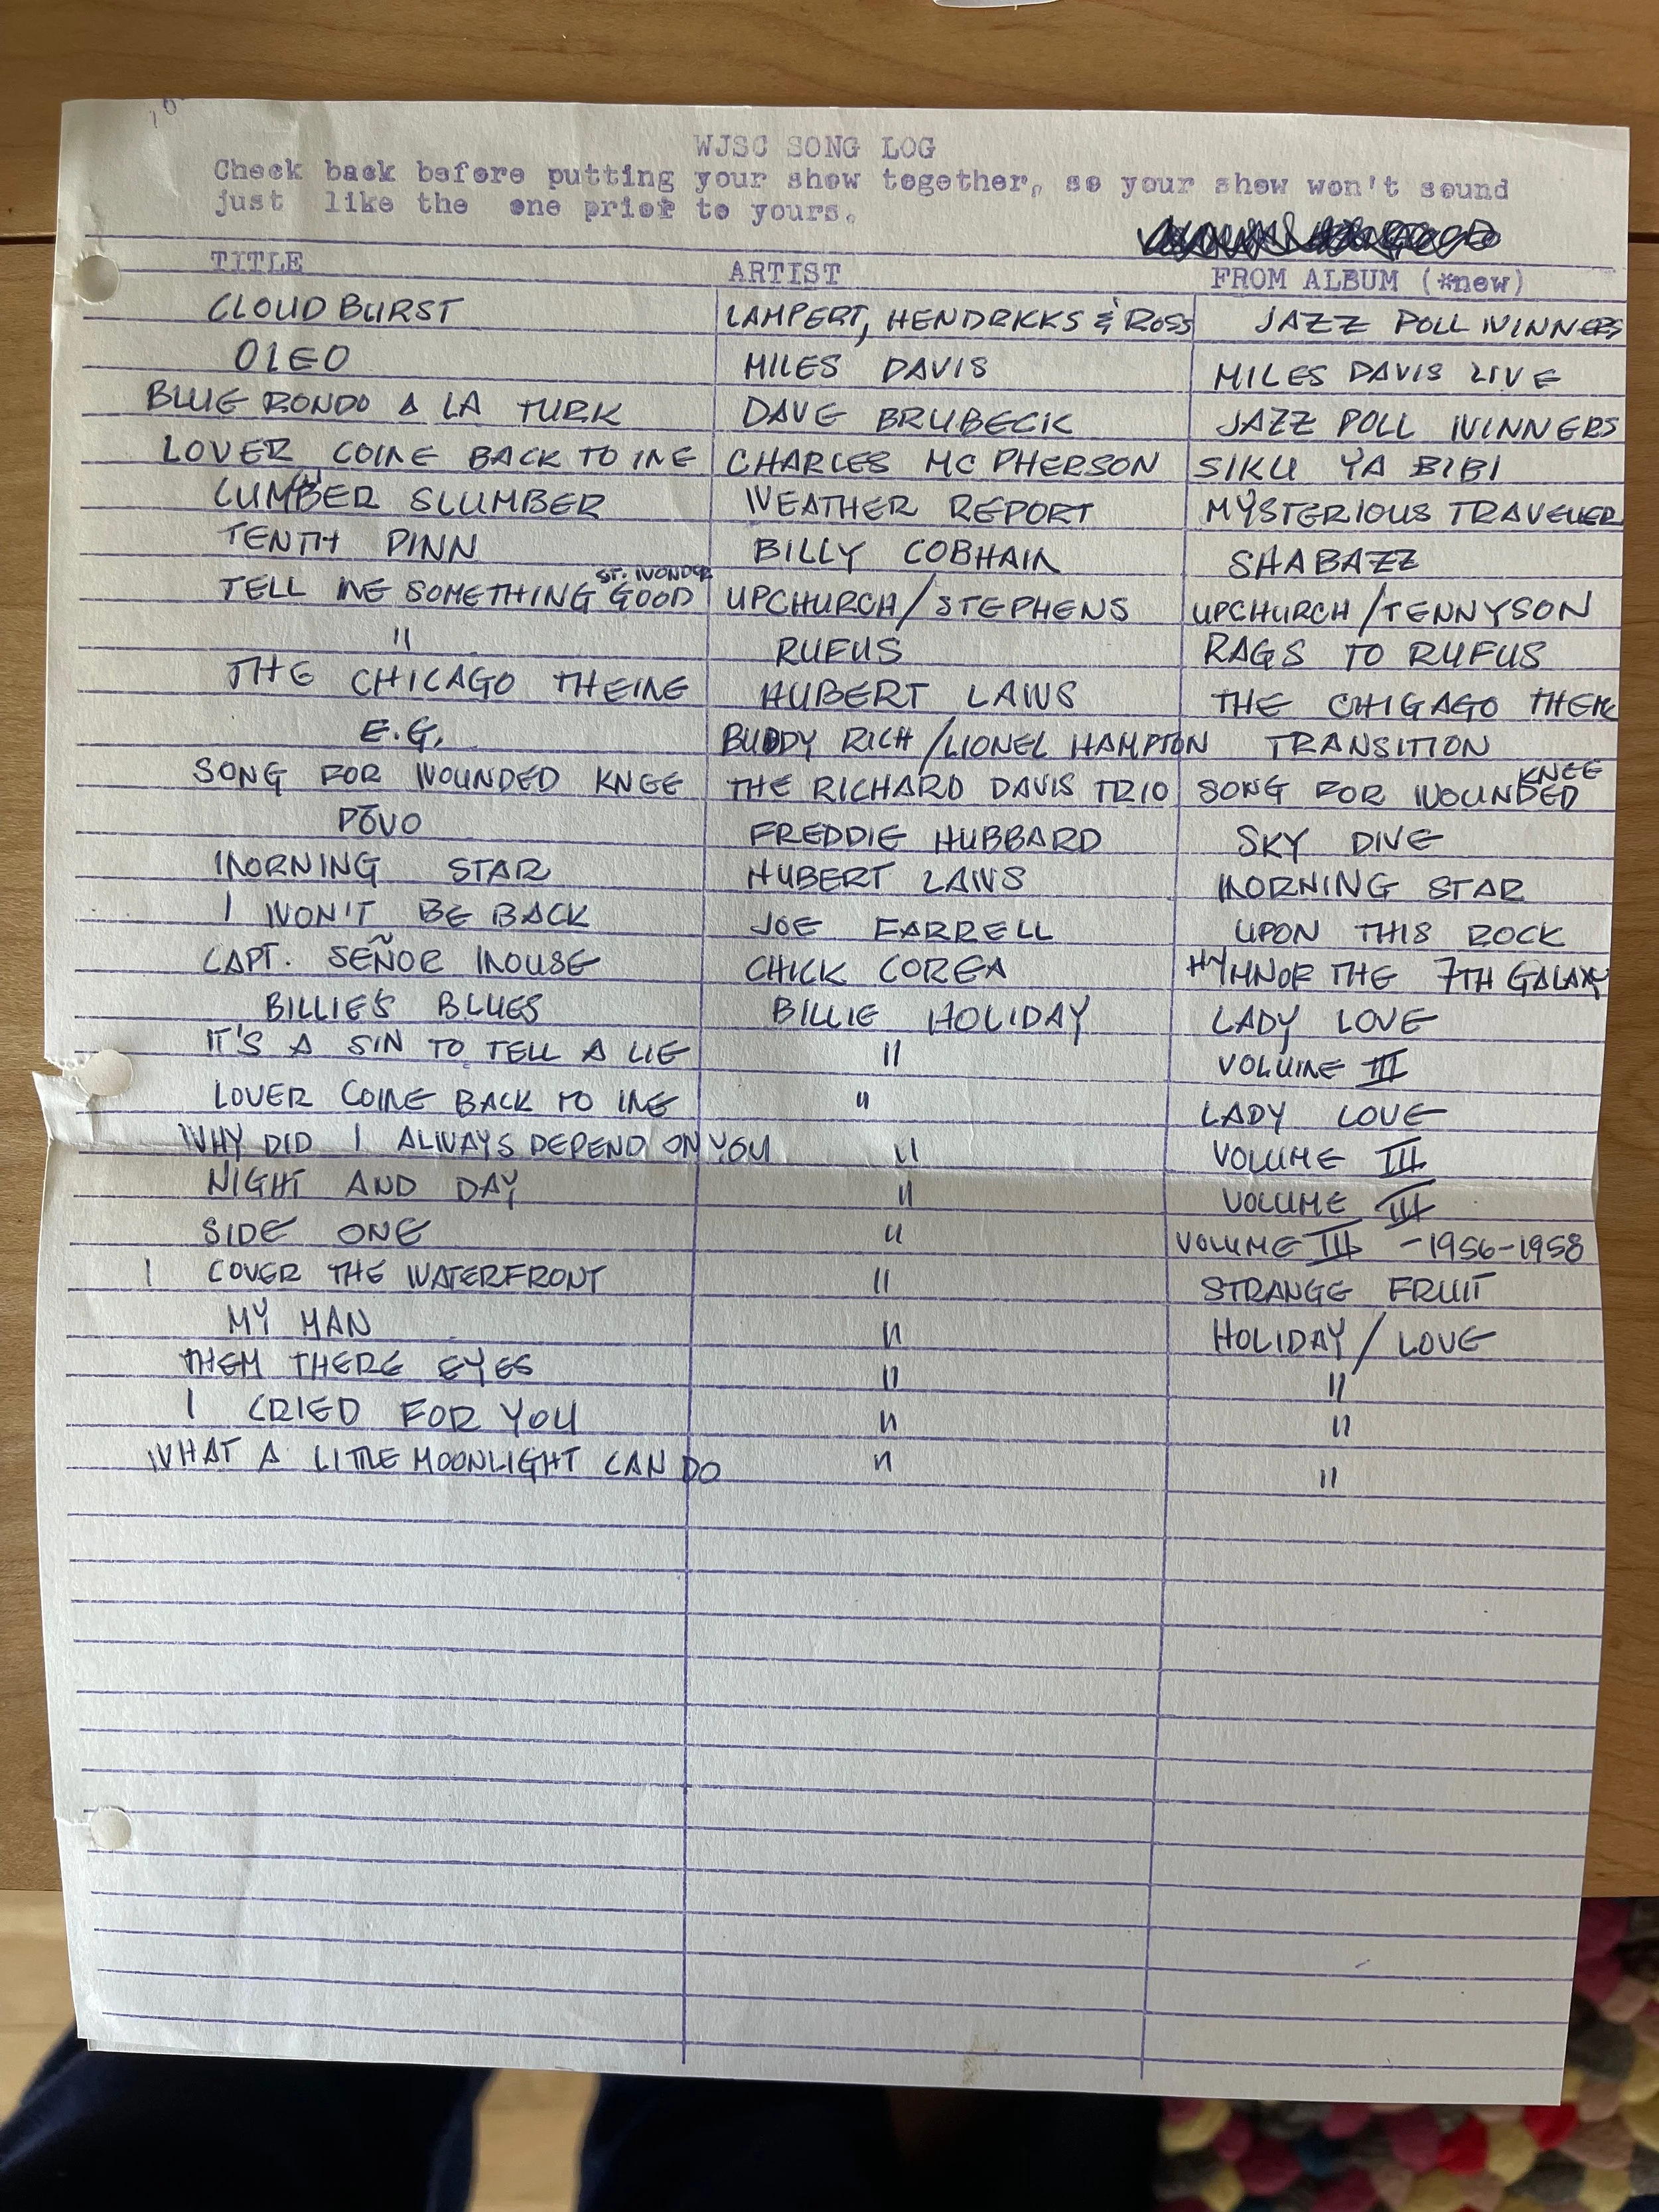 WJSC SONG LOG
Check back before putting your show together, so your show won't sound
just like the one prior to yours.
TITLE ARTIST FROM ALBUM (*new)
CLOUD BURST LAMPERT, HENDRICKS & ROSS JAZZ POLL WINNERS
OLEO MILES DAVIS MILES DAVIS LIVE
BLUE RONDO A LA TURK DAVE BRUBECK JAZZ POLL WINNERS
LOVER COME BACK TO ME CHARLES MC PHERSON SIKU YA BIBI
CUMBER SLUMBER WEATHER REPORT MYSTERIOUS TRAVELER
TENTH PINN BILLY COBHAM SHABAZZ
TELL ME SOMETHING GOOD ST. WONDER UPCHURCH/STEPHENS UPCHURCH/TENNYSON
" RUFUS RAGS TO RUFUS
THE CHICAGO THEME HUBERT LAWS THE CHIGAGO THEME
E.G. BUDDY RICH/LIONEL HAMPTON TRANSITION
SONG FOR WOUNDED KNEE THE RICHARD DAVIS TRIO SONG FOR WOUNDED KNEE
PŌVO FREDDIE HUBBARD SKY DIVE
MORNING STAR HUBERT LAWS MORNING STAR
I WON'T BE BACK JOE FARRELL UPON THIS ROCK
CAPT. SEÑOR MOUSE CHICK COREA HYMN OF THE 7TH GALAXY
BILLIE'S BLUES BILLIE HOLIDAY LADY LOVE
IT'S A SIN TO TELL A LIE " VOLUME III
LOVER COME BACK TO ME " LADY LOVE
WHY DID I ALWAYS DEPEND ON YOU " VOLUME III
NIGHT AND DAY " VOLUME III
SIDE ONE " VOLUME III - 1956-1958
I COVER THE WATERFRONT " STRANGE FRUIT
MY MAN " HOLIDAY / LOVE
THEM THERE EYES " "
I CRIED FOR YOU " "
WHAT A LITTLE MOONLIGHT CAN DO " "